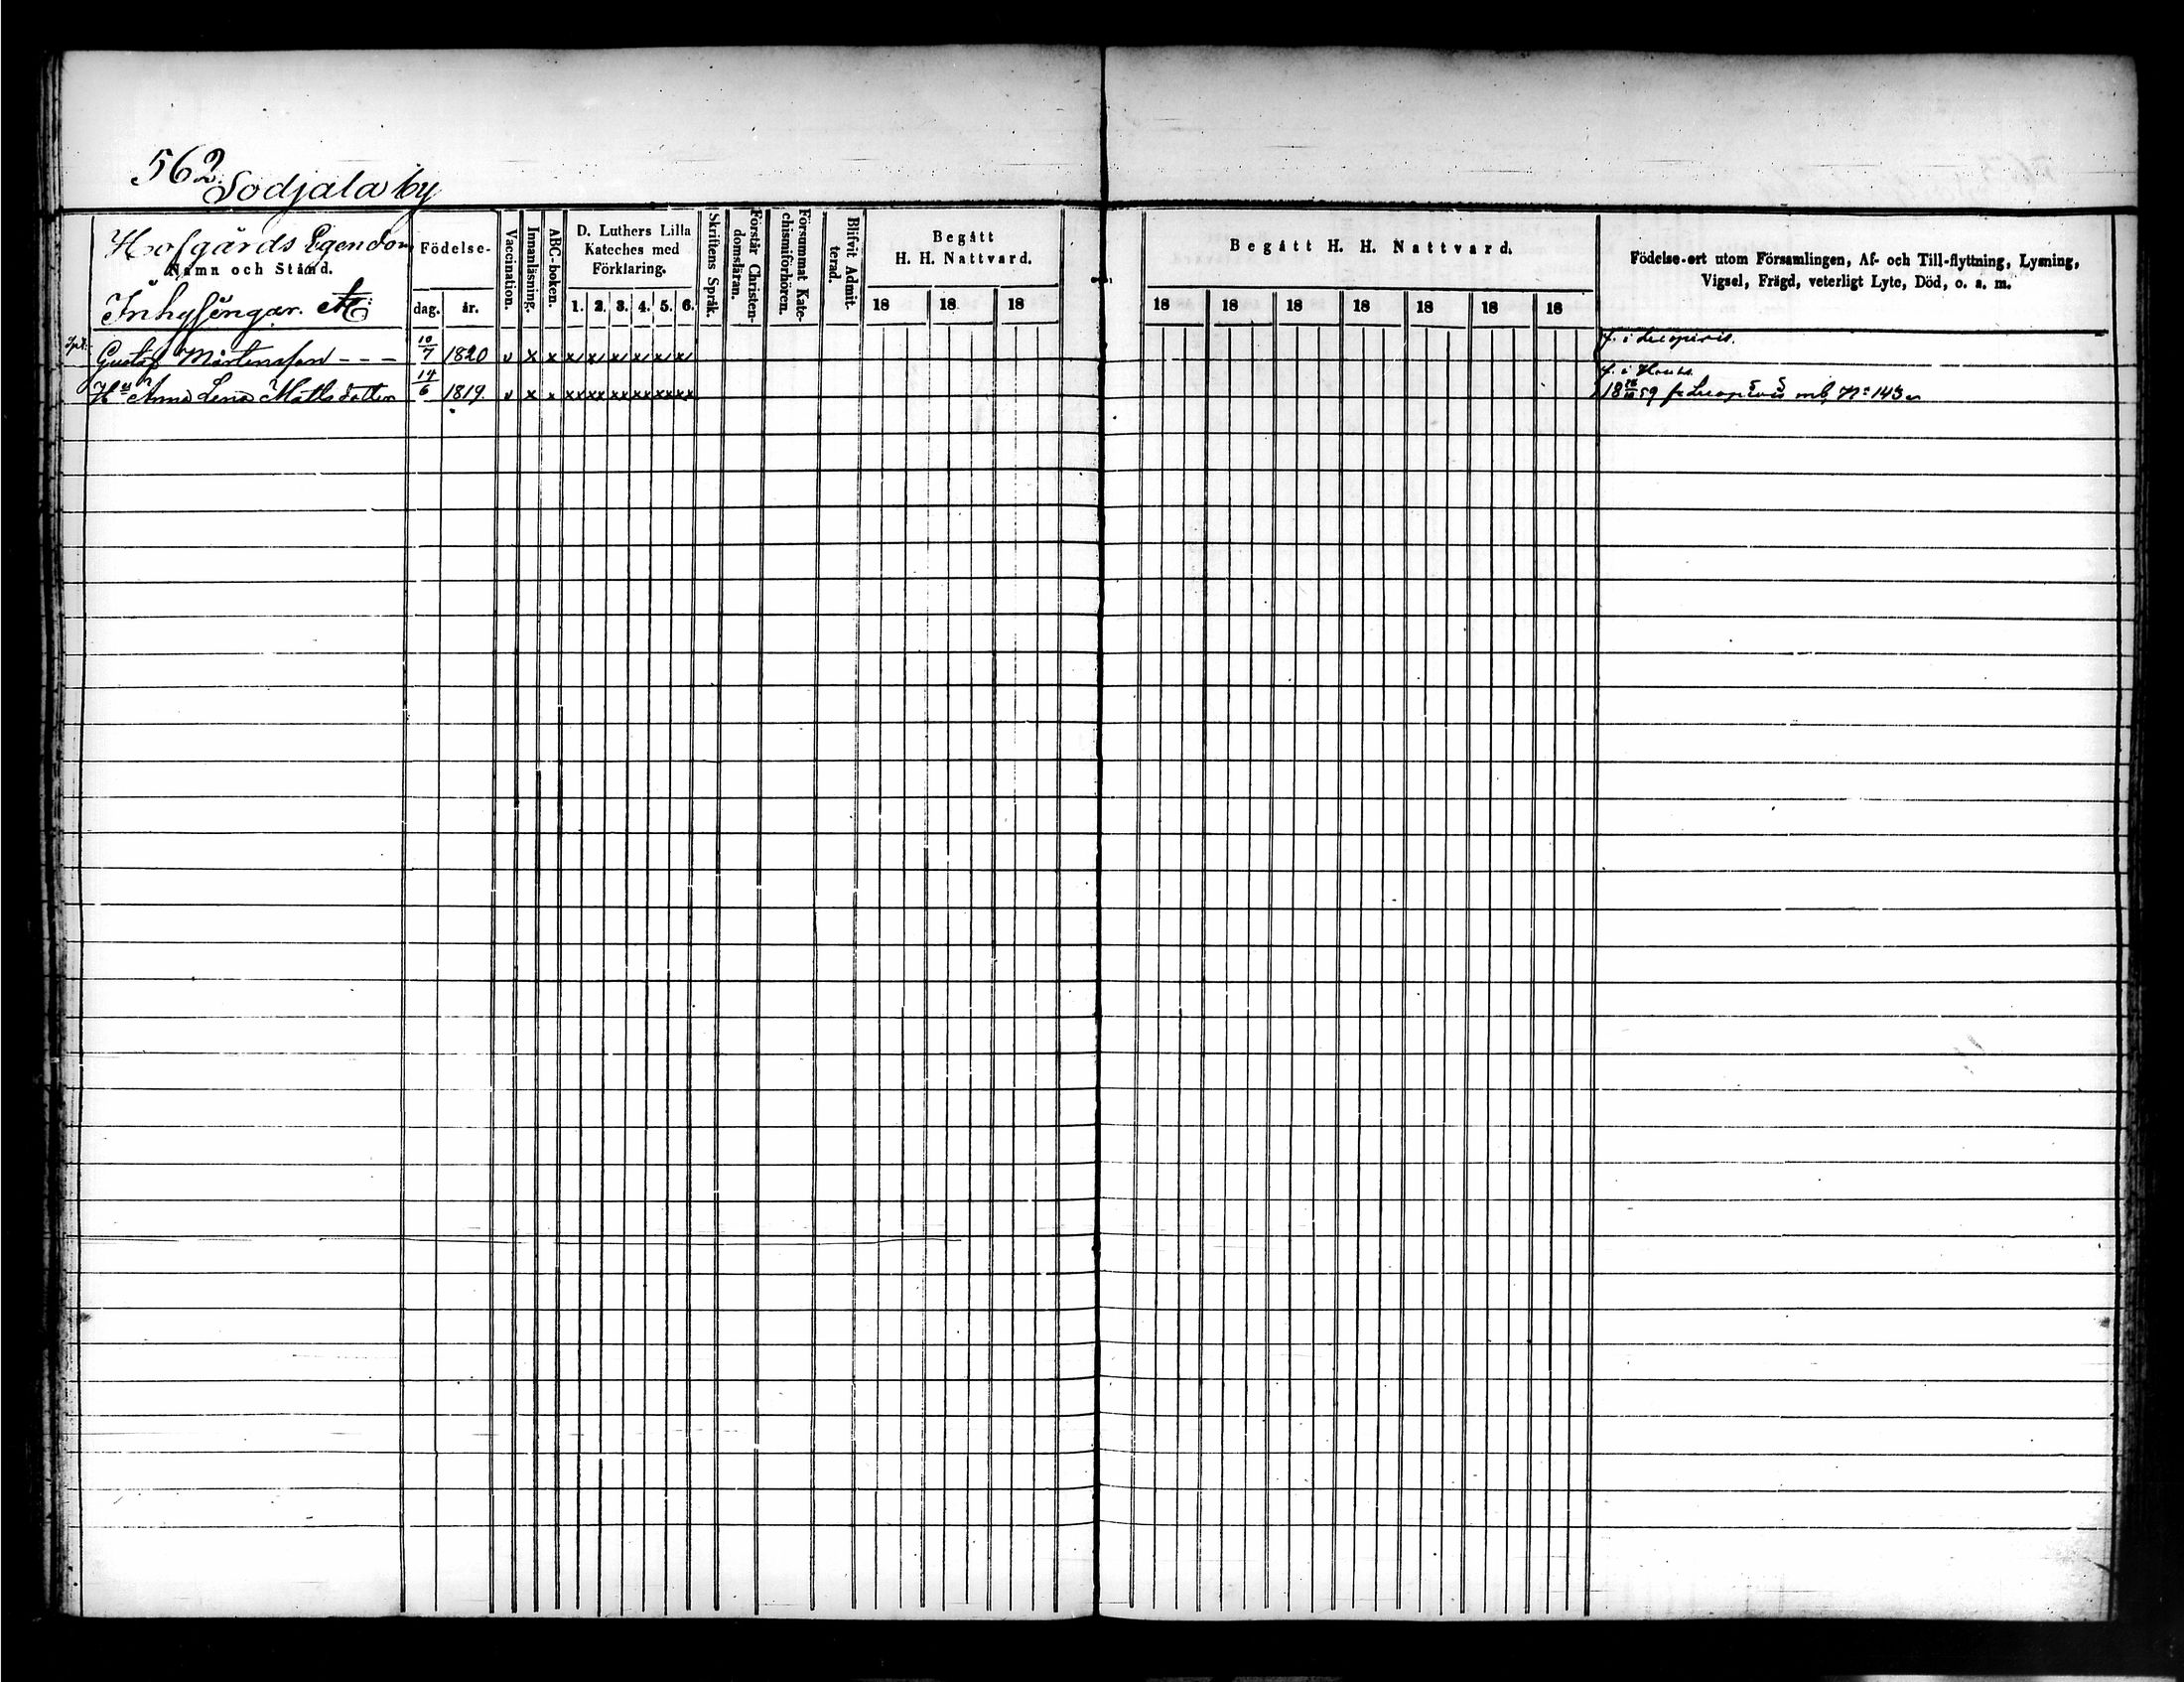 562.
Sodjala by
Hofgårds Egendom
Namn och Stånd.
Inhysingar.
Födelse-
dag. år.
Vaccination.
Innanläsning.
ABC-boken.
D. Luthers Lilla
Kateches med
Förklaring.
1. 2. 3. 4. 5. 6.
Skriftens Språk.
Förstår Christen-
domsläran.
Försummat Kate-
chismiförhören.
Blifvit Admit-
terad.
Begått
H. H. Nattvard.
18 18 18
Begått H. H. Nattvard.
18 18 18 18 18 18 18
Födelse-ort utom Församlingen, Af- och Till-flyttning, Lysning,
Vigsel, Frägd, veterligt Lyte, Död, o. s. m.
Gustaf Mårtensson - - - 10/7 1820 v x x x x x x x x f. i
Hu Anna Lena Mattsdotter 14/6 1819. v x x xx xx xx xx xx xx f. i
18 59 mb N:o 143